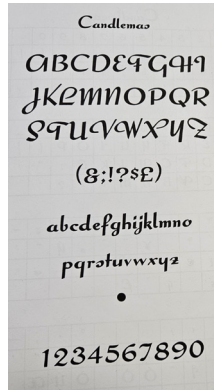 Candlemas
ABCDEFGHI
JKLMNOPQR
STUVWXYZ
(&;!?$£)
abcdefghijklmno
pqrstuvwxyz
1234567890